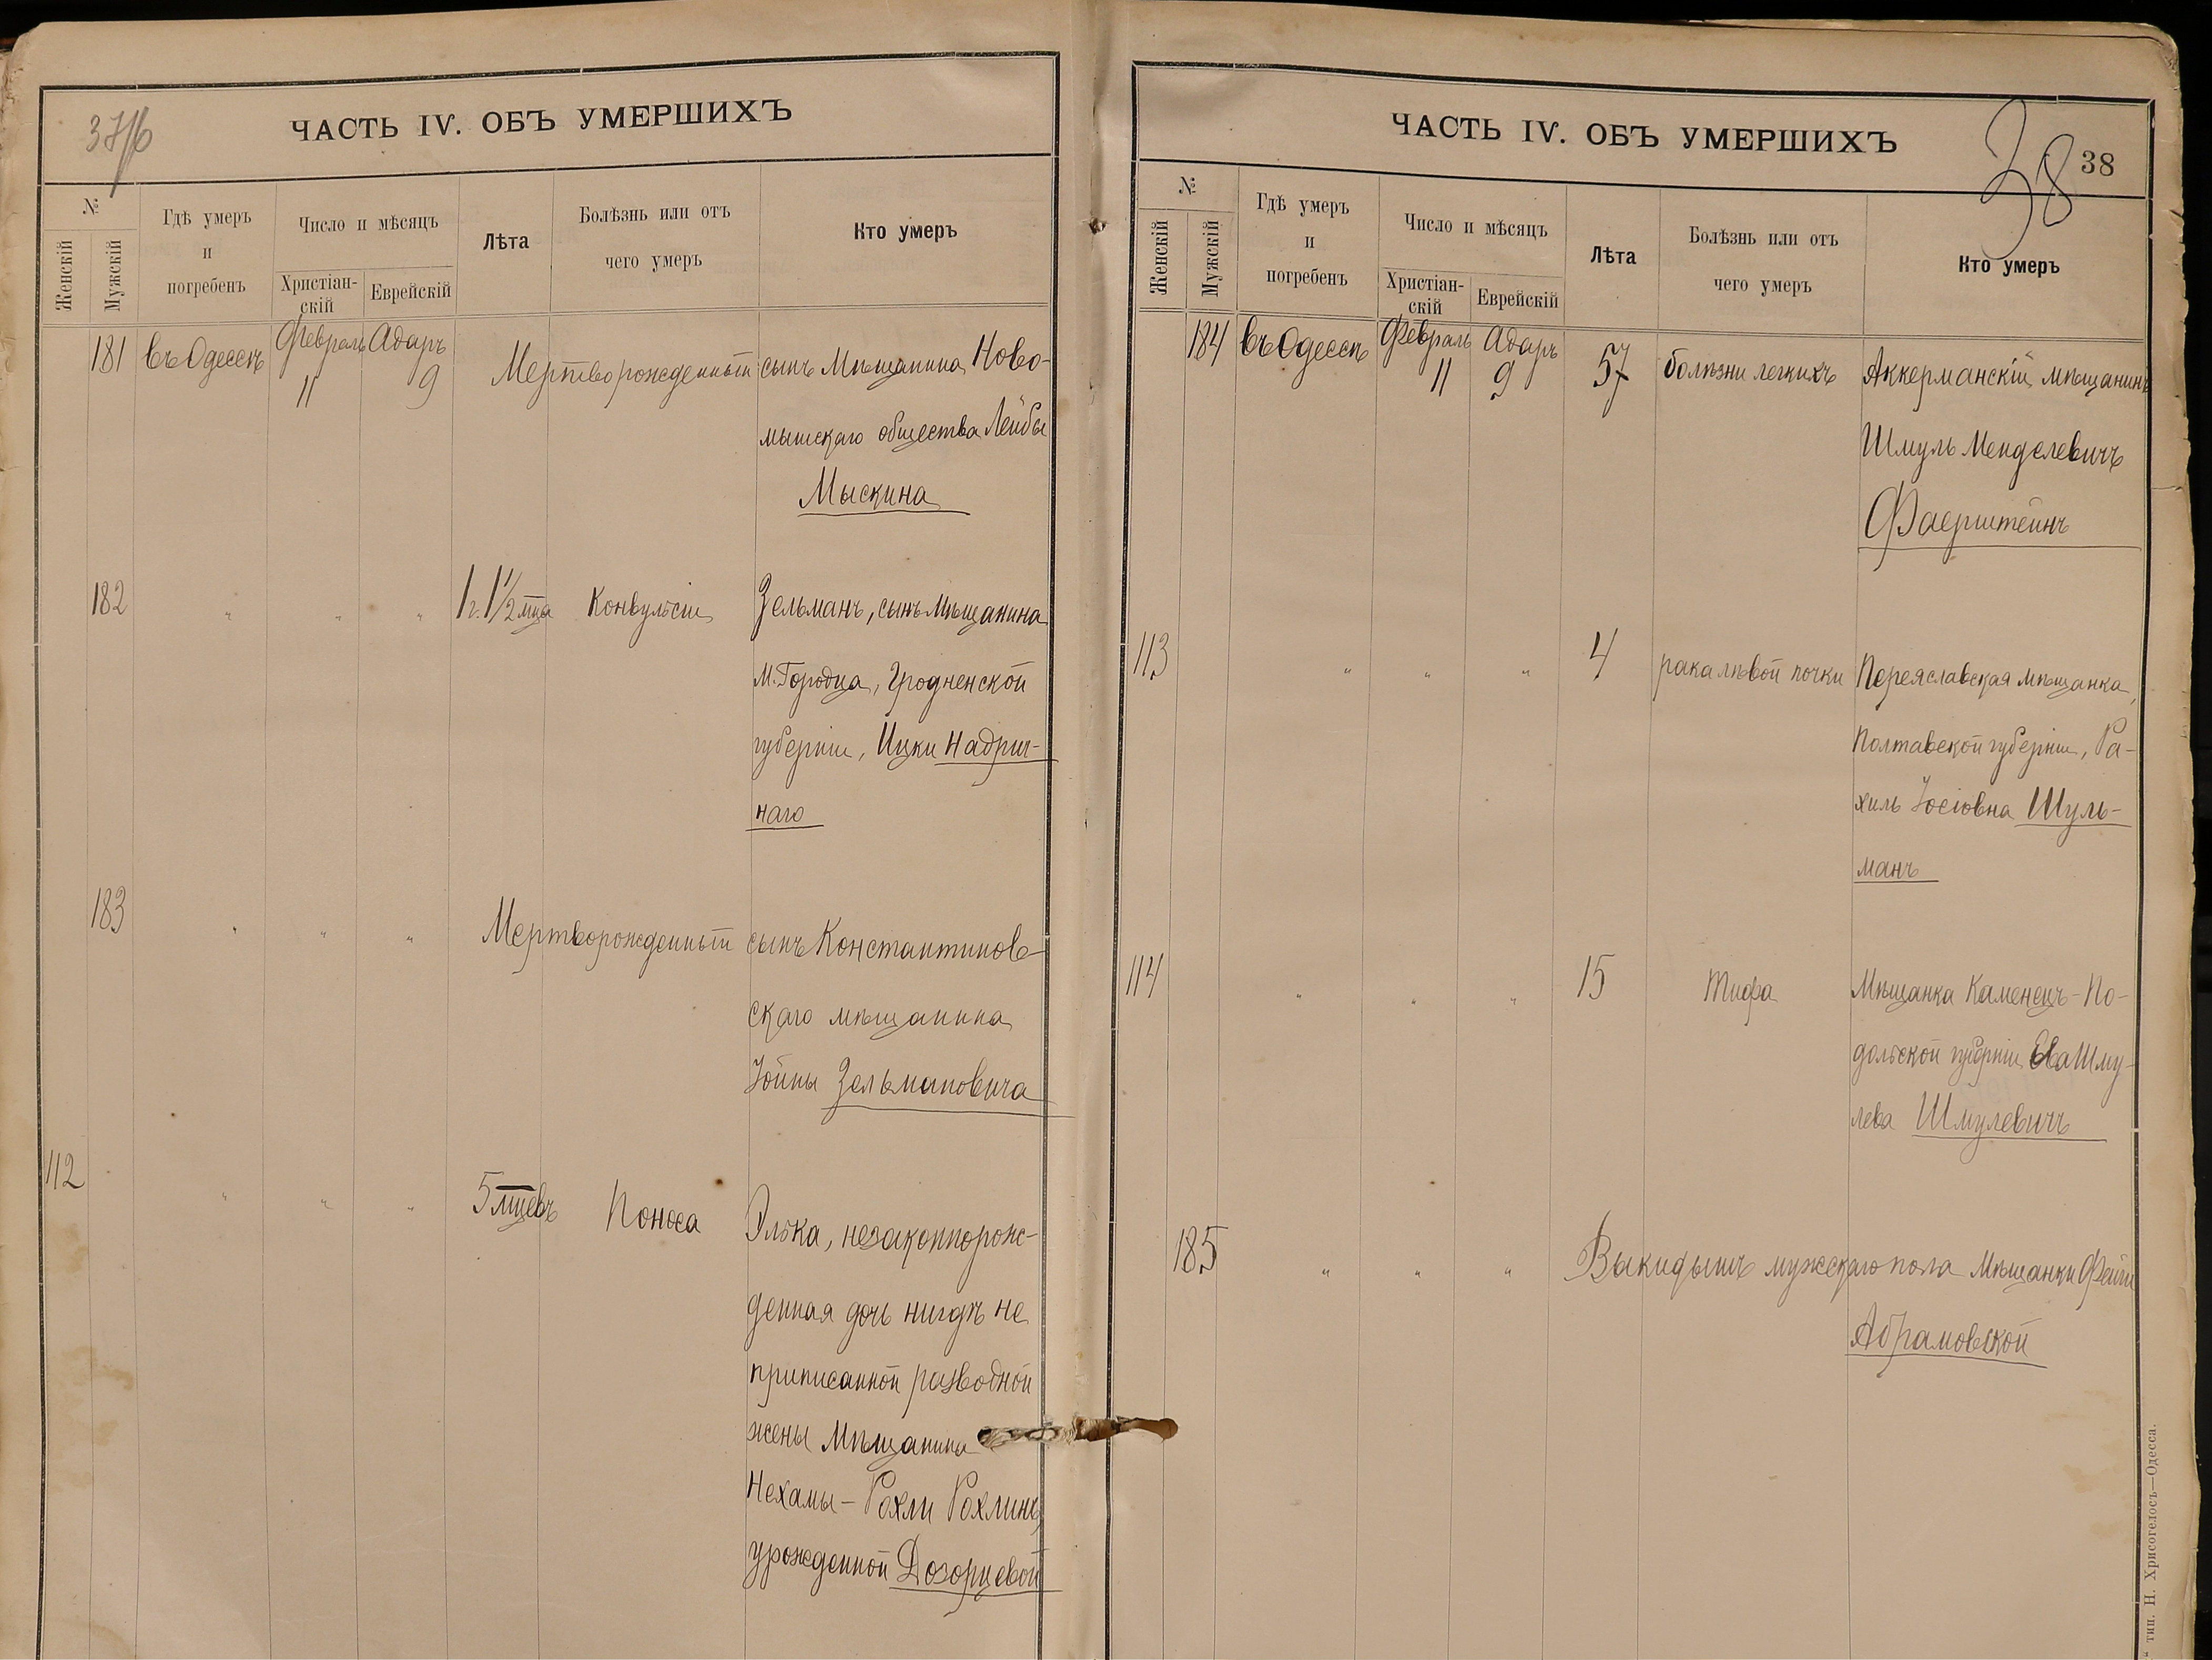 37/б
ЧАСТЬ IV. ОБЪ УМЕРШИХЪ
№
Женскій
Мужскій
Гдѣ умеръ
и
погребенъ
Число и мѣсяцъ
Христіан-
скій
Еврейскій
Лѣта
Болѣзнь или отъ
чего умеръ
Кто умеръ
181 въ Одессѣ Февраль Адаръ Мертворожденный сынъ Мѣщанина Ново-
11 9
мышскаго общества Лейбы
Мыскина
182 " " " 1 г. 1 1/2 мца Конвульсіи Зельманъ, сынъ Мѣщанина
М. Городца, Гродненской
губерніи, Ицки Надрич-
наго
183 " " " Мертворожденный сынъ Константинов-
скаго мѣщанина
Іойны Зельмановича
112 " " " 5 мцевъ Поноса Элька, незаконнорож-
денная дочь нигдѣ не
приписанной разводной
жены Мѣщанина
Нехамы-Рохли Рохлинъ,
урожденной Дозорцевой
ЧАСТЬ IV. ОБЪ УМЕРШИХЪ
38
38
№
Женскій
Мужскій
Гдѣ умеръ
и
погребенъ
Число и мѣсяцъ
Христіан-
скій
Еврейскій
Лѣта
Болѣзнь или отъ
чего умеръ
Кто умеръ
184 въ Одессѣ Февраль Адаръ 57 болѣзни легкихъ Аккерманскій мѣщанинъ
11 9
Шмуль Менделевичъ
Фаерштейнъ
113 " " " 4 рака лѣвой почки Переяславская мѣщанка,
Полтавской губерніи, Ра-
хиль Іосіовна Шуль-
манъ
114 " " " 15 Тифа Мѣщанка Каменецъ-По-
дольской губерніи Ева Шму-
лева Шмулевичъ
185 " " " Выкидышъ мужскаго пола Мѣщанки Фейги
Абрамовской
тип. Н. Хрисогелосъ—Одесса.